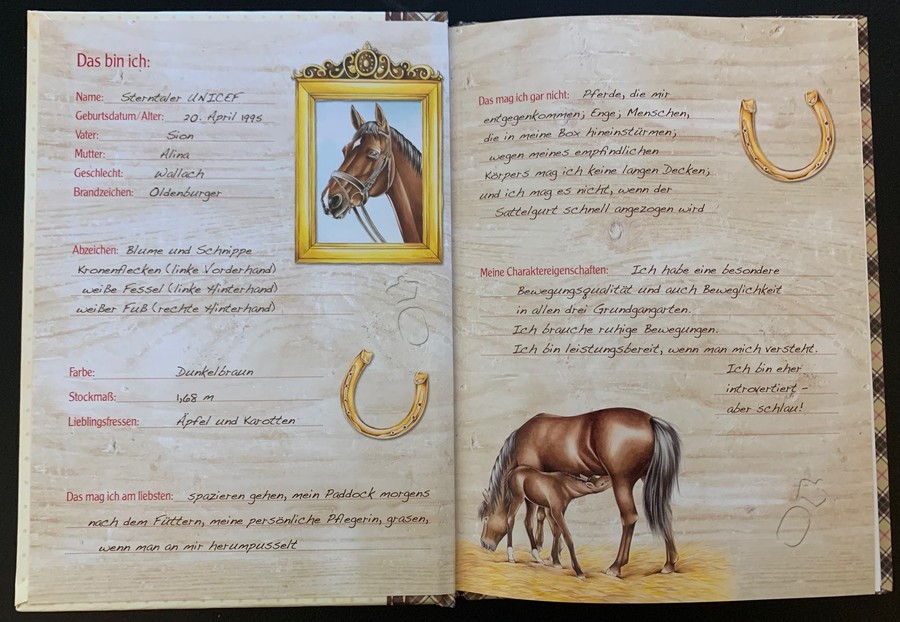 Das bin ich:
Name: Sterntaler UNICEF
Geburtsdatum/Alter: 20. April 1995
Vater: Sion
Mutter: Alina
Geschlecht: Wallach
Brandzeichen: Oldenburger
Abzeichen: Blume und Schnippe
Kronenflecken (linke Vorderhand)
weiße Fessel (linke Hinterhand)
weißer Fuß (rechte Hinterhand)
Farbe: Dunkelbraun
Stockmaß: 1,68 m
Lieblingsfressen: Äpfel und Karotten
Das mag ich am liebsten: spazieren gehen, mein Paddock morgens
nach dem Füttern, meine persönliche Pflegerin, grasen,
wenn man an mir herumpusselt
Das mag ich gar nicht: Pferde, die mir
entgegenkommen; Enge; Menschen,
die in meine Box hineinstürmen;
wegen meines empfindlichen
Körpers mag ich keine langen Decken;
und ich mag es nicht, wenn der
Sattelgurt schnell angezogen wird
Meine Charaktereigenschaften: Ich habe eine besondere
Bewegungsqualität und auch Beweglichkeit
in allen drei Grundgangarten.
Ich brauche ruhige Bewegungen.
Ich bin leistungsbereit, wenn man mich versteht.
Ich bin eher
introvertiert -
aber schlau!